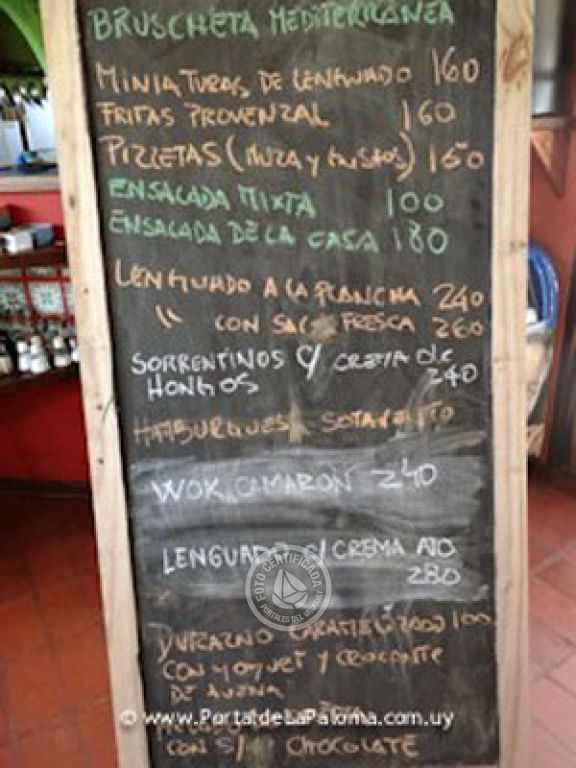 BRUSCHETA MEDITERRÁNEA
MINIATURAS DE LENGUADO 160
FRITAS PROVENZAL 160
PIZZETAS (MUZA y GUSTOS) 150
ENSALADA MIXTA 100
ENSALADA DE LA CASA 180
LENGUADO A LA PLANCHA 240
" CON SALSA FRESCA 260
SORRENTINOS C/ CREMA de
HONGOS 240
HAMBURGUESA SOTAVENTO
WOK CAMARON 240
LENGUADO C/ CREMA AJO
280
FOTO CERTIFICADA
PORTALES DEL URUGUAY
DURAZNO CARAMELIZADO 100
CON YOGUET Y CROCANTE
DE AVENA
© www.PortaldeLaPaloma.com.uy
CON S/ CHOCOLATE